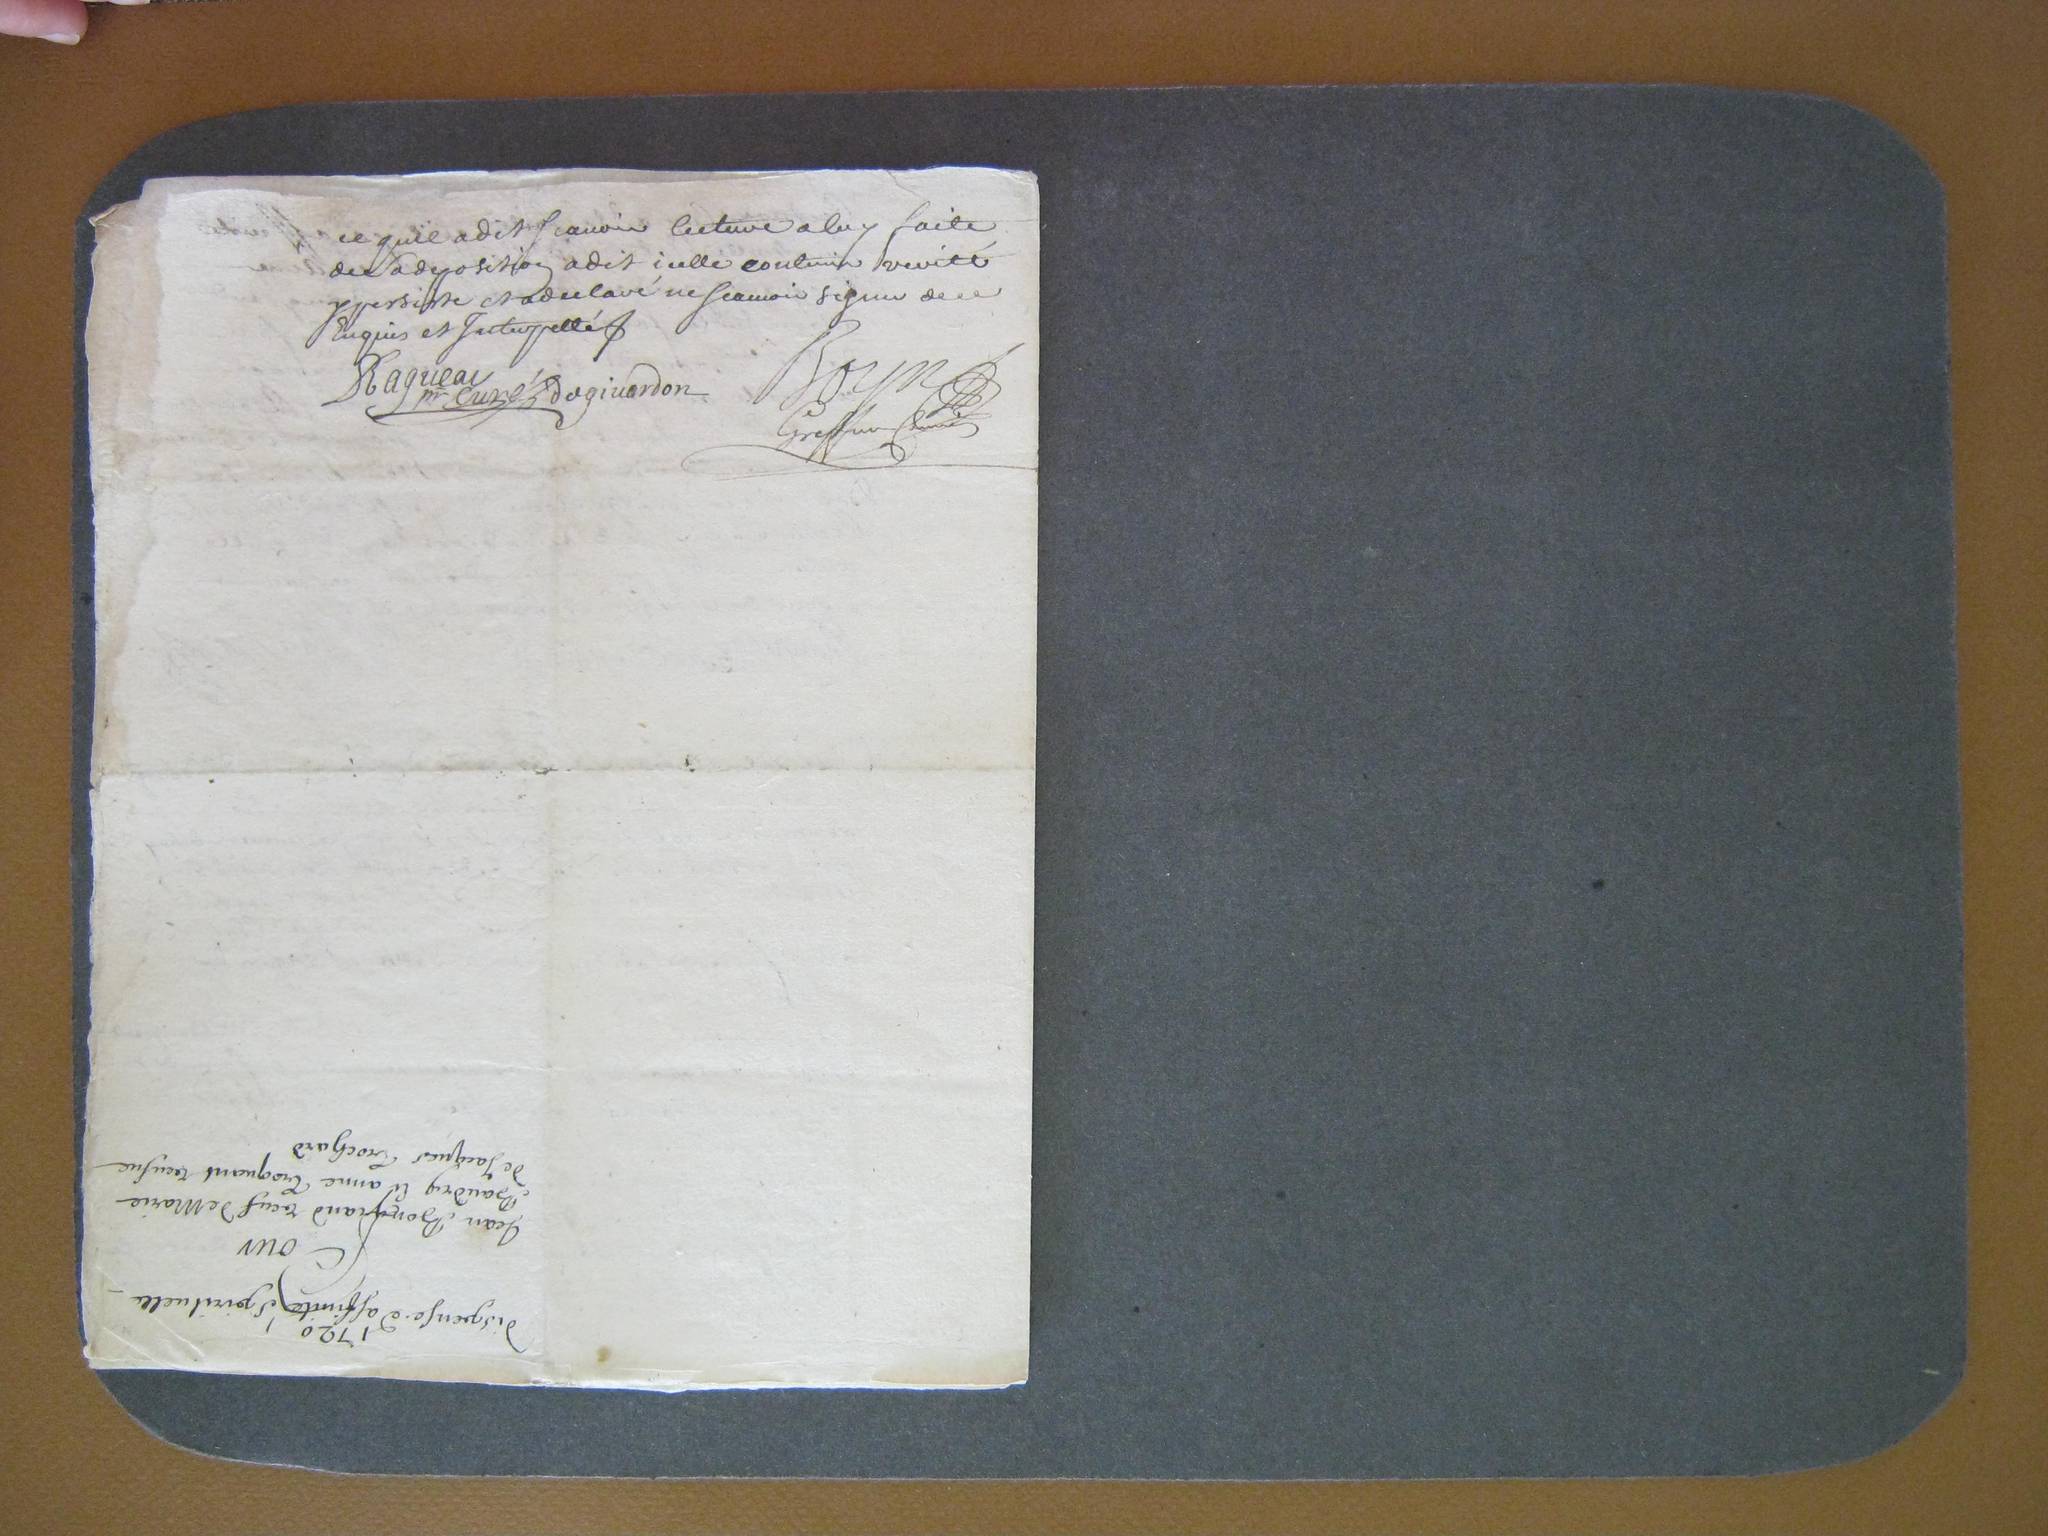 ce quil a dit scauoir lecture a luy faite
de sa deposition a dit icelle contenir veritté
y persiste et a declaré ne scauoir signer de ce
Enquis et Interpellé
Ragueau
ptr Curé degivardon
Greffier
1720
dispense d'affinité Spirituelle
Pour
Jean Bonfrand veuf de Marie
Baudry et anne Croquant veufue
de Jacques Brochard